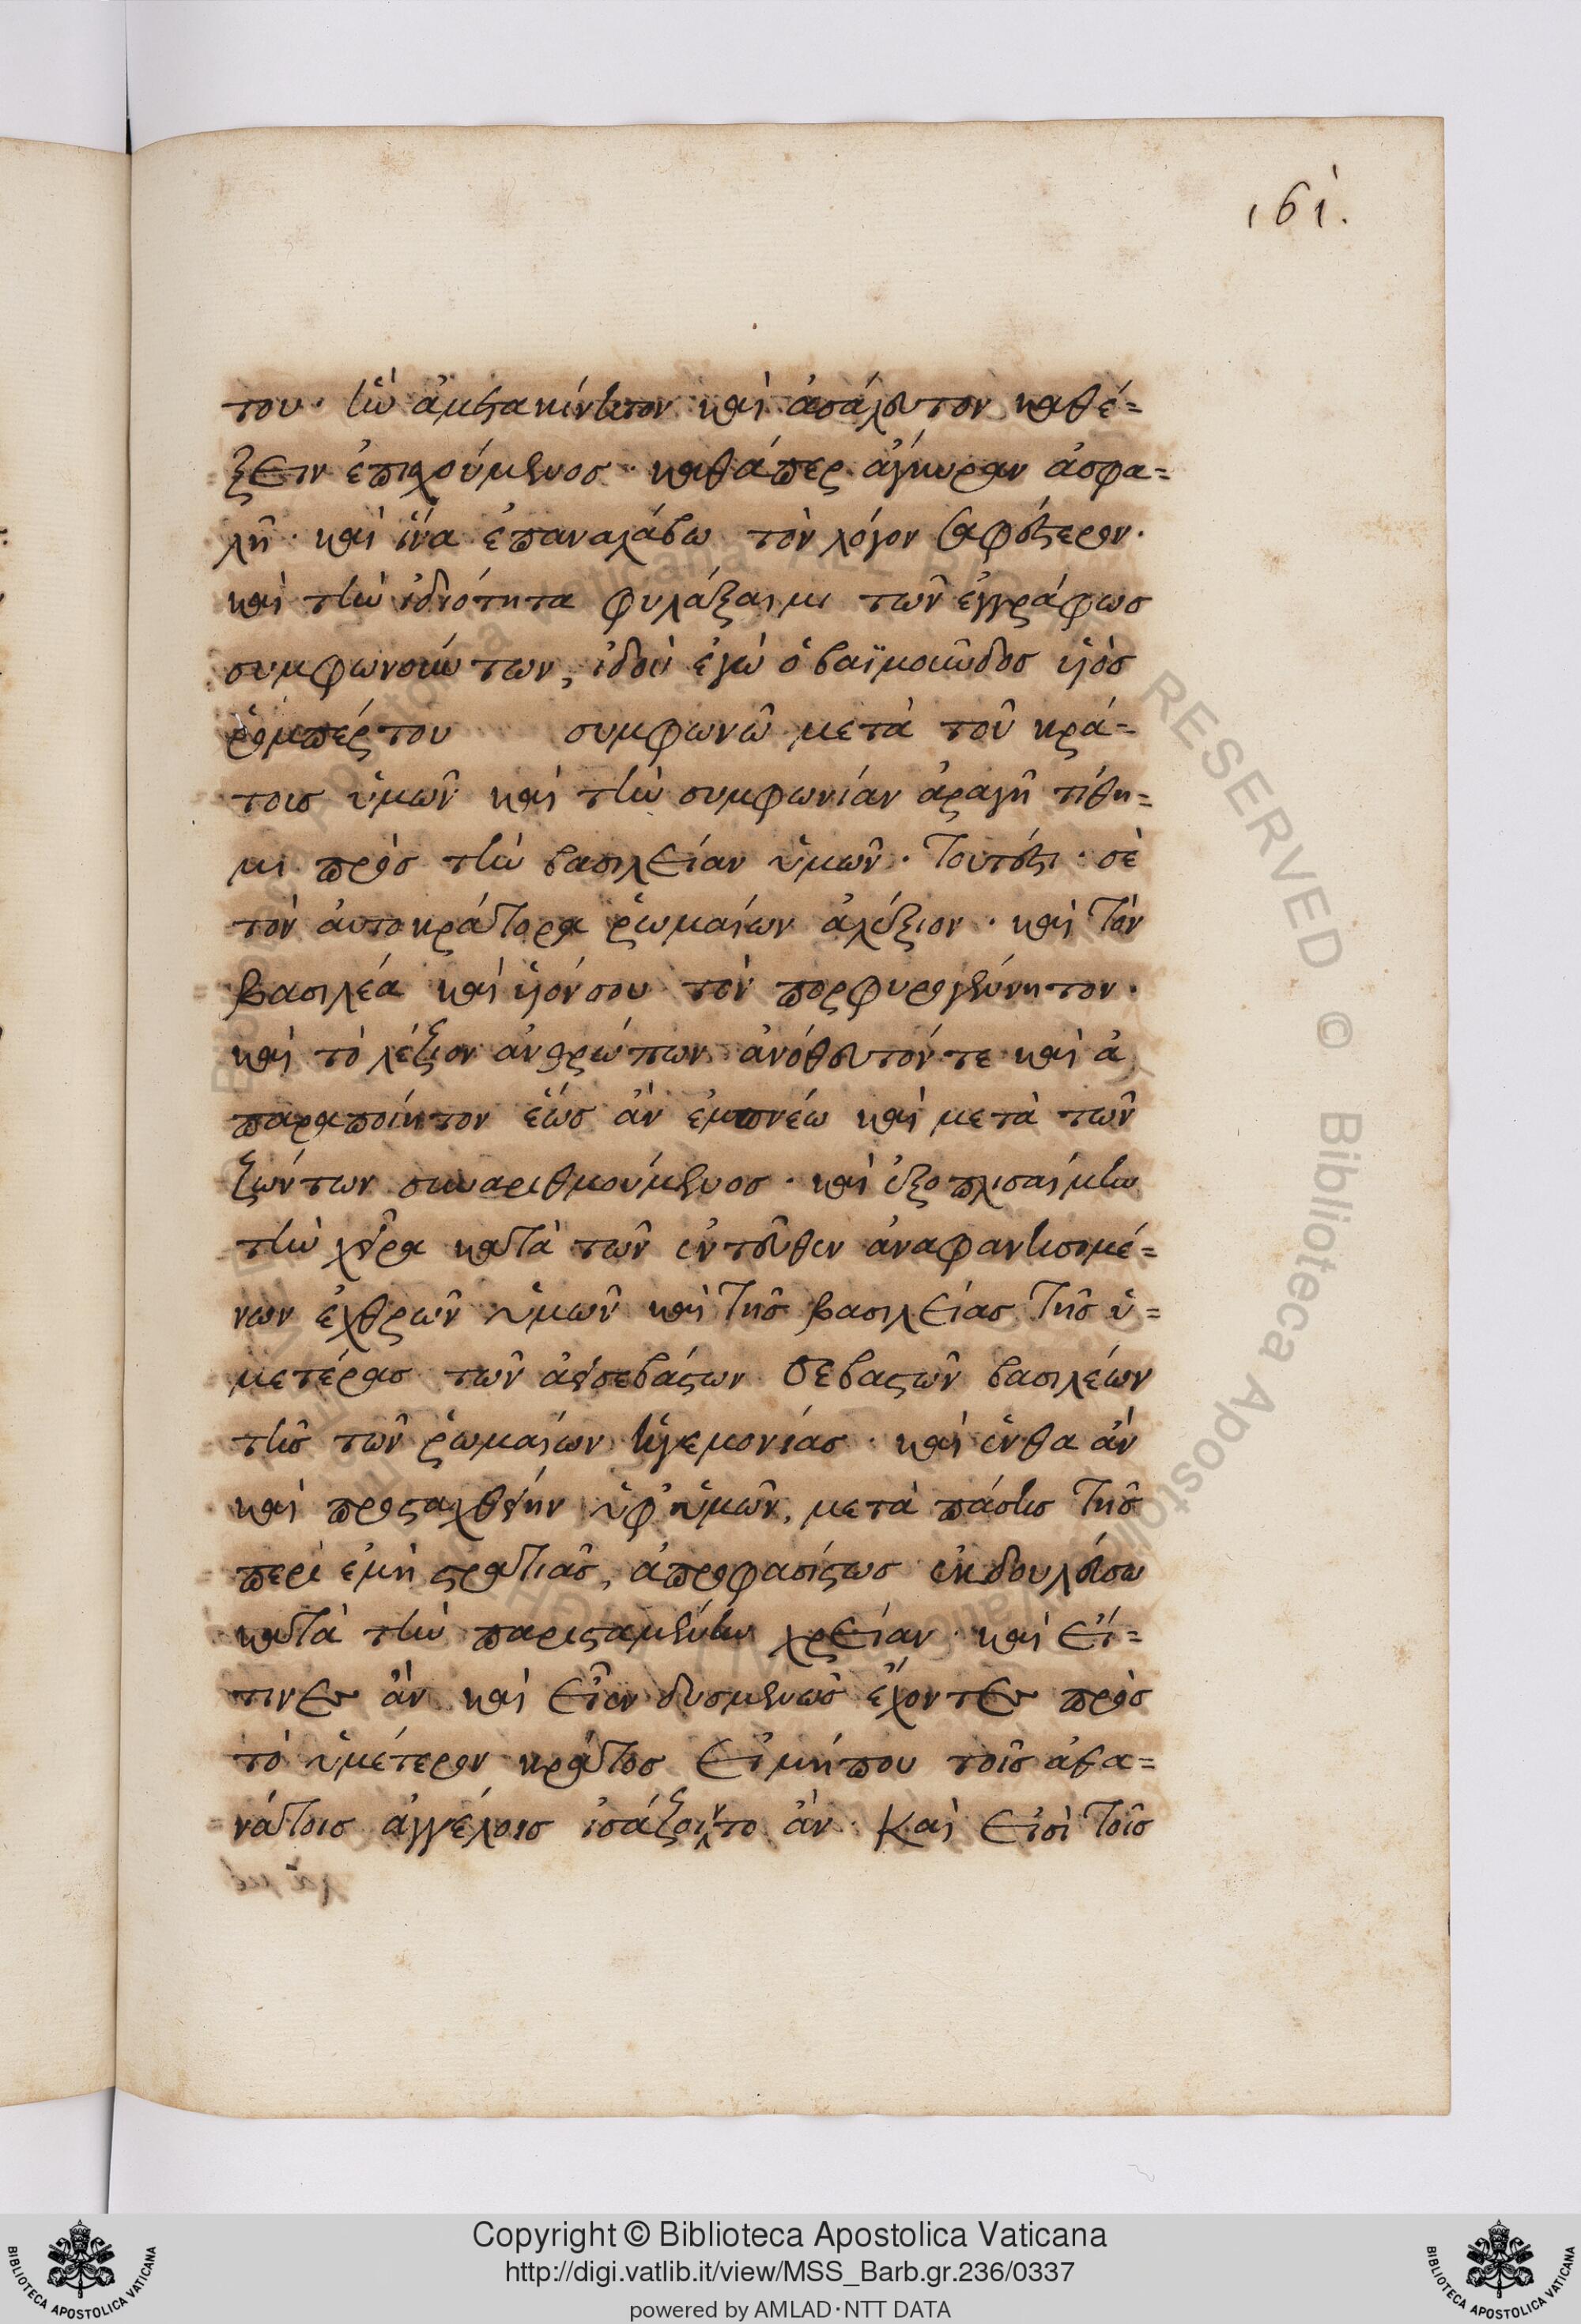 161.
του· ἣν ἀμετακίνητον καὶ ἀσάλευτον καθέ=
ξειν ἐπαγγελλόμενος· καθάπερ ἄγκυραν ἀσφα=
λῆ· καὶ ἵνα ἐπαναλάβω τὸν λόγον σαφέστερον·
καὶ τὴν ἰδιότητα φυλάξαιμι τῶν ἐγγράφως
συμφωνούντων, ἰδοὺ ἐγὼ ὁ βαϊμοῦνδος υἱὸς
ῥομπέρτου συμφωνῶ μετὰ τοῦ κρά=
τοις ὑμῶν καὶ τὴν συμφωνίαν ἀραγῆ τίθη=
μι πρὸς τὴν βασιλείαν ὑμῶν· τουτέστι· σὲ
τὸν αὐτοκράτορα ῥωμαίων ἀλέξιον· καὶ τὸν
βασιλέα καὶ υἱόν σου τὸν πορφυρογέννητον·
καὶ τὸ λέξιον ἀνθρώπων ἀνόθευτόν τε καὶ ἀ
παραποίητον ἕως ἂν ἐμπνέω καὶ μετὰ τῶν
ζώντων συναριθμούμενος· καὶ ἐξοπλισαίμην
τὴν χεῖρα κατὰ τῶν ἐντεῦθεν ἀναφανησομέ=
νων ἐχθρῶν ὑμῶν καὶ τῆς βασιλείας τῆς ὑ=
μετέρας τῶν ἀεισεβάστων σεβαστῶν βασιλέων
τῆς τῶν ῥωμαίων ἡγεμονίας· καὶ ἔνθα ἂν
καὶ προσταχθείην ὑφ' ὑμῶν, μετὰ πάσης τῆς
περὶ ἐμὴ στρατιᾶς, ἀπροφασίστως ἐκδουλεύσω
κατὰ τὴν παρισταμένην χρείαν· καὶ εἴ=
τινες ἂν καὶ εἶεν δυσμενῶς ἔχοντες πρὸς
τὸ ὑμέτερον κράτος εἰμήπου τοῖς ἀθα=
νάτοις ἀγγέλοις ἰσάζοιντο ἂν· Καὶ εἰσὶ τοῖς
Copyright © Biblioteca Apostolica Vaticana
http://digi.vatlib.it/view/MSS_Barb.gr.236/0337
powered by AMLAD·NTT DATA